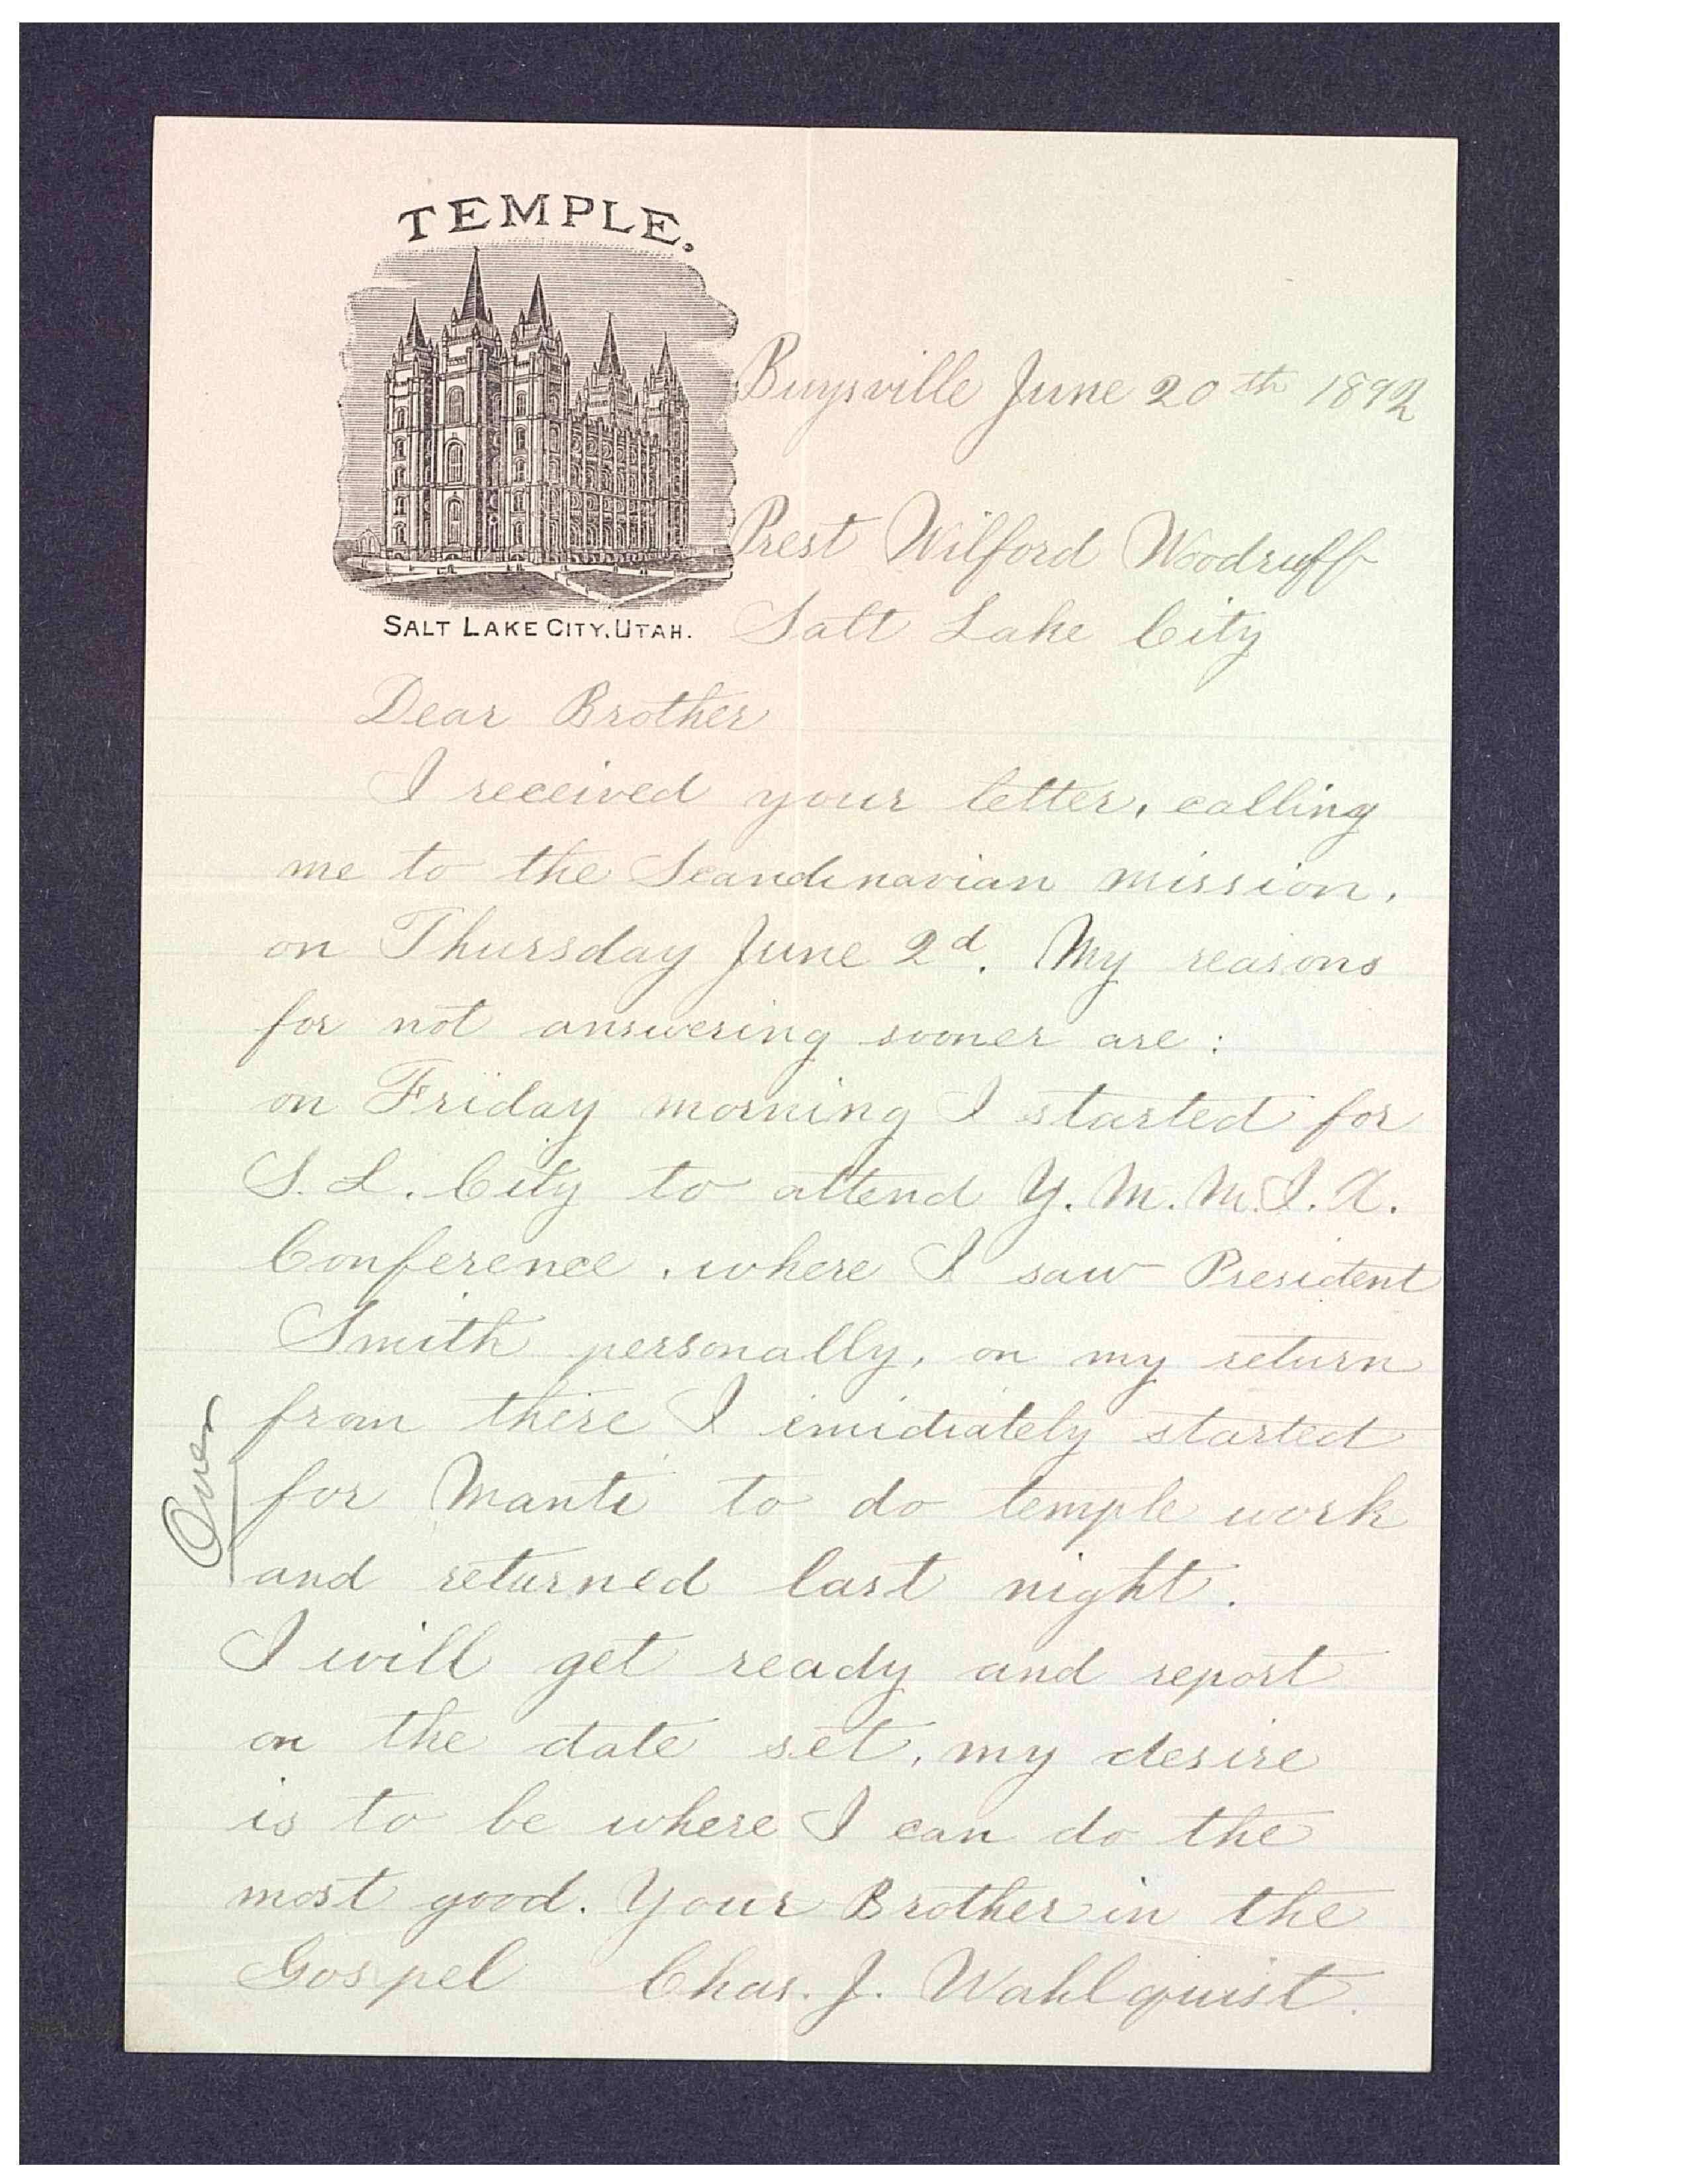 TEMPLE.
SALT LAKE CITY, UTAH.
Buysville June 20th 1892
Prest Wilford Woodruff
Salt Lake City
Dear Brother
I received your letter, calling
me to the Scandinavian mission,
on Thursday June 2d. My reasons
for not answering sooner are:
on Friday morning I started for
S. L. City to attend Y. M. M. I. A.
Conference, where I saw President
Smith personally, on my return
from there I imidiately started
for Manti to do temple work
and returned last night.
I will get ready and report
on the date set, my desire
is to be where I can do the
most good. Your Brother in the
Gospel Chas. J. Wahlquist.
Over